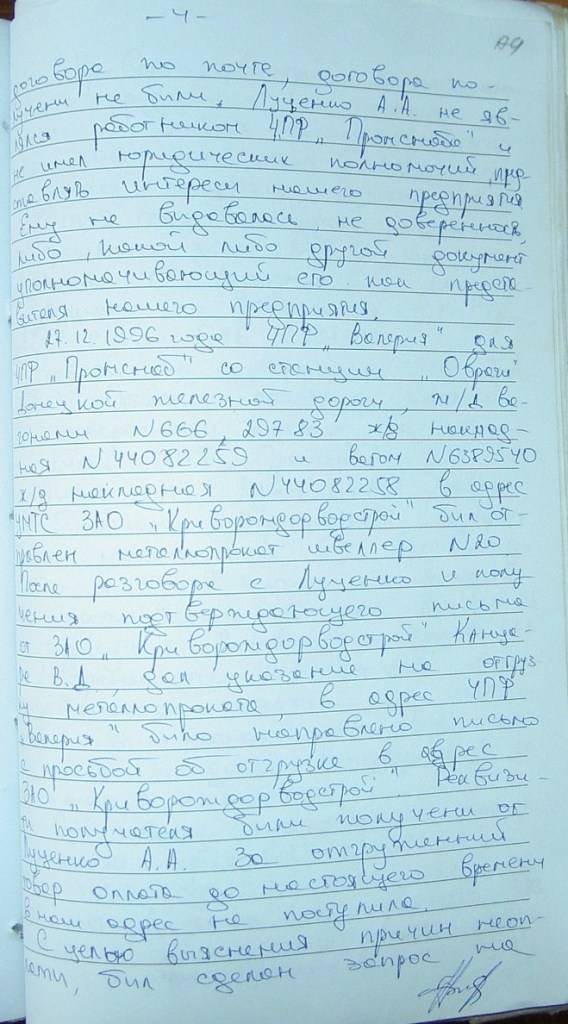 - 4 -
договора по почте, договора по-
лучени не били. Луценко А.А. не яв-
лялся работником ЧПР „Промснаба" и
не имел юридических полномочий пред-
ставлять интереси нашего предприятия
Ему не видавалось не доверенность,
либо какой либо другой документ
уполномачивающий его как предста-
вителя нашего предприятия.
27.12.1996 года ЧПР „Валерия" для
ЧПР „Промснаб" со станции „Овраги"
Донецкой железной дороги, ж/д ва-
гонами N666, 29783 ж/д наклад-
ная N44082259 и вагон N6389540
ж/д накладная N44082258 в адрес
УМТС ЗАО „Криворождорводстрой" бил от-
правлен металлопрокат швеллер N20.
После разговора с Луценко и полу
чения подтверждающего письма
от ЗАО „Криворождорводстрой" Канца-
ре В.Д. дал указание на отгруз
ку металлопроката, в адрес ЧПР
„Валерия" било направлено письмо
с просьбой об отгрузке в адрес
ЗАО „Криворождорводстрой". Реквизи-
ти получателя били получени от
Луценко А.А. За отгруженний
товар оплата до настоящего времени
в наш адрес не поступила.
С целью выяснения причин неоп-
лати, бил сделан запрос на